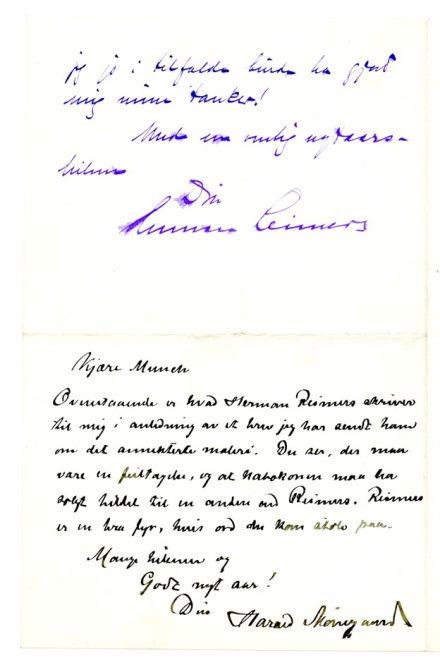 jeg jo i tilfælde burde ha gjort
mig mine tanker!
Med en venlig nytaars-
hilsen
Din
Herman Reimers
Kjære Munch
Ovenstaaende er hvad Herman Reimers skriver
til mig i anledning av et brev jeg har sendt ham
om det annekterte maleri. Du ser, der maa
være en feiltagelse, og at
solgt billedet til en anden end Reimers. Reimers
er en bra fyr, hvis ord du kan stole paa.
Mange hilsener og
Godt nyt aar!
Din
Harald Nørregaard